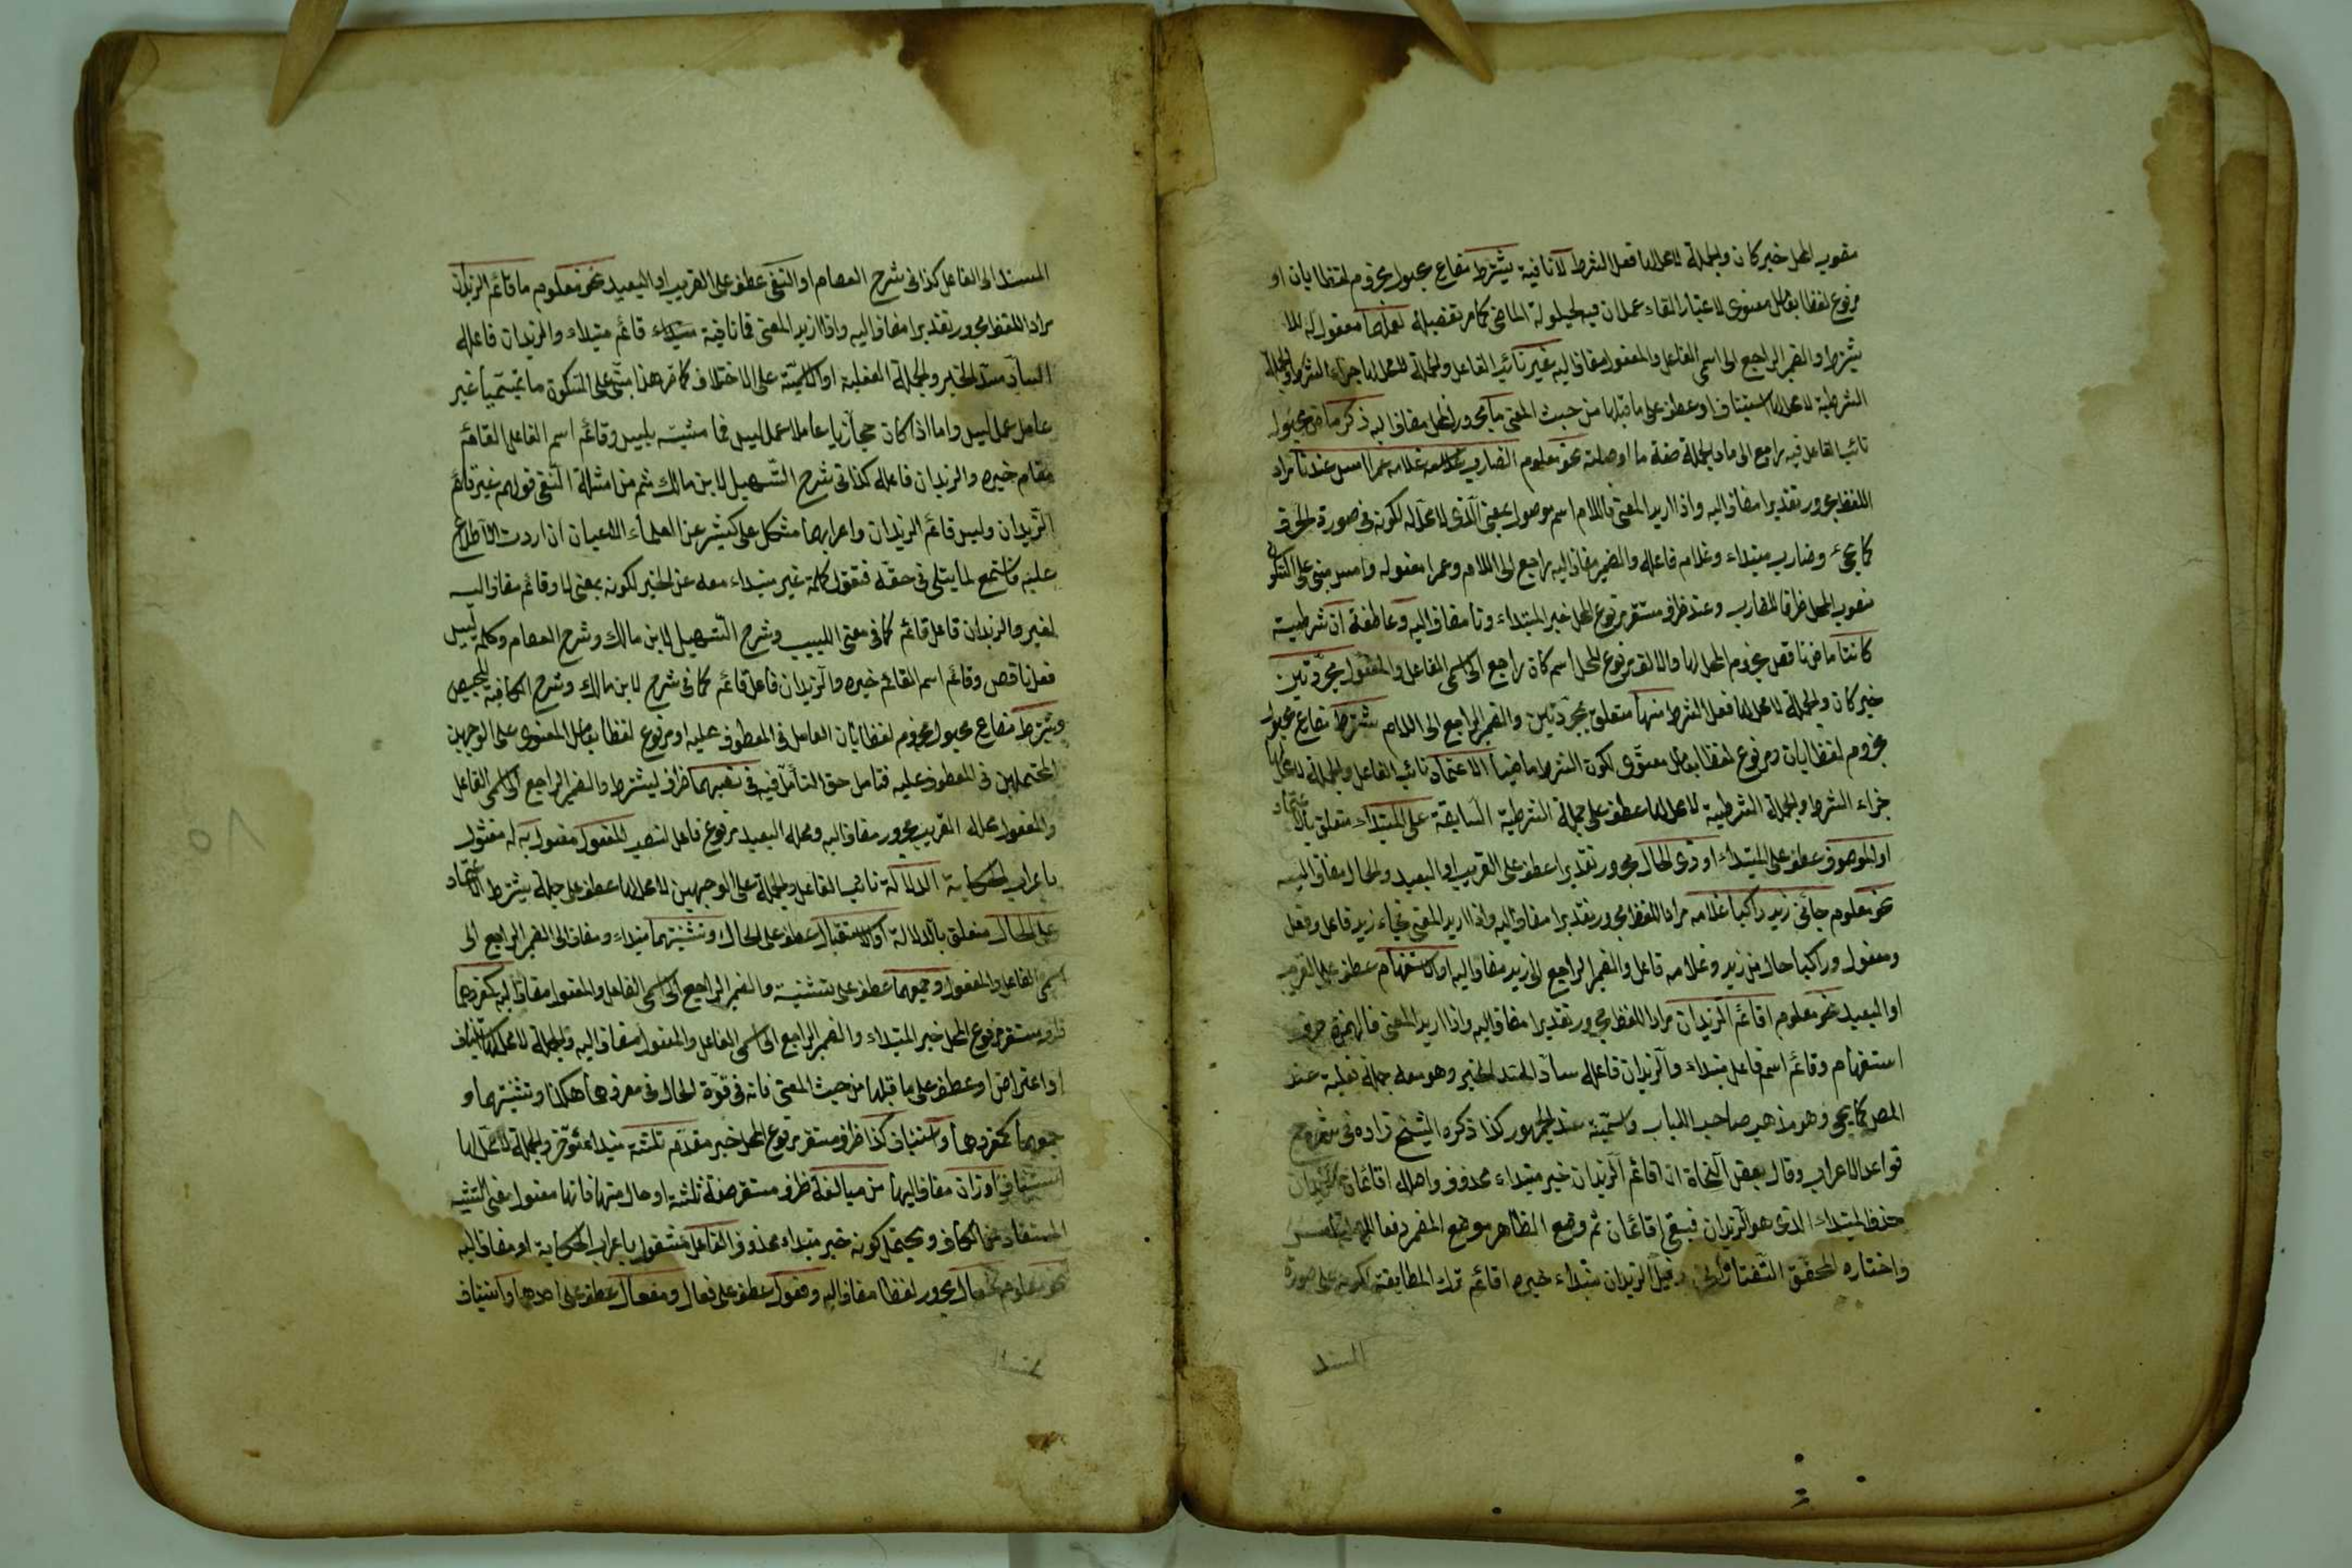 منصوب المحل خبر كان والجملة لا محل لها فعل الشرط لا نافية يشترط مضارع مجهول مجزوم لفظا بان او
مرفوع لفظا بعامل معنوى لاعتبار القاء عمل ان فيه لحيلولة الماضى كما مر تفصيله لعملهما مفعول له للا
يشترط والضمير الراجع الى اسمى الفاعل والمفعول مضاف اليه غير نائب الفاعل والجملة لا محل لها جزاء الشرط والجملة
الشرطية لا محل لها استيناف او عطف على ما قبلها من حيث المعنى ما مجرور المحل مضاف اليه ذكر ماض مجهول
نائب الفاعل فيه راجع الى ما والجملة صفة ما او صلته نحو معلوم الضارب غلامه عمرا امس عندنا مراد
اللفظ مجرور تقديرا مضاف اليه واذا اريد المعنى فاللام اسم موصول بمعنى الذى لا محل له لكونه فى صورة الحرف
كما يجئ وضارب مبتداء وغلامه فاعله والضمير مضاف اليه راجع الى اللام وعمرا مفعوله وامس مبنى على السكون
منصوب المحل ظرف لضارب وعند ظرف مستقر مرفوع المحل خبر المبتداء ونا مضاف اليه وعاطفة ان شرطية
كانتا ماض ناقص مجزوم المحل بها والالف مرفوع المحل اسم كان راجع الى اسمى الفاعل والمفعول مجردتين
خبر كان والجملة لا محل لها فعل الشرط منها متعلق بمجردتين والضمير الراجع الى اللام يشترط مضارع مجهول
مجزوم لفظا بان ومرفوع لفظا بعامل معنوى لكون الشرط ماضيا الاعتماد نائب الفاعل والجملة لا محل لها
جزاء الشرط والجملة الشرطية لا محل لها عطف على جملة الشرطية السابقة على المبتداء متعلق بالاعتماد
او الموصوف عطف على المبتداء او ذى الحال مجرور تقديرا عطف على القريب او البعيد والحال مضاف اليه
نحو معلوم جائنى زيد راكبا غلامه مراد اللفظ مجرور تقديرا مضاف اليه واذا اريد المعنى فجاء زيد فاعل وفعل
ومفعول وراكبا حال من زيد وغلامه فاعل والضمير الراجع الى زيد مضاف اليه او الاستفهام عطف على القريب
او البعيد نحو معلوم اقائم الزيدان مراد اللفظ مجرور تقديرا مضاف اليه واذا اريد المعنى فالهمزة حرف
استفهام وقائم اسم فاعل مبتداء والزيدان فاعله ساد المسد الخبر وهو معه جملة فعلية عند
المص كما يجئ وهو مذهب صاحب اللباب واسمية عند الجمهور كذا ذكره الشيخ زاده فى شرح
قواعد الاعراب وقال بعض النحاة ان اقائم الزيدان خبر مبتداء محذوف واصله اقائمان الزيدان
حذف المبتداء الذى هو الزيدان فبقى اقائمان ثم وضع الظاهر موضع المضمر دفعا للالتباس
واختاره المحقق التفتازانى وقيل الزيدان مبتداء خبره اقائم ترك المطابقة لكونه على صورة
المسند
المسند الى الفاعل كذا فى شرح العصام او النفى عطف على القريب او البعيد نحو معلوم ما قائم الزيدان
مراد اللفظ مجرور تقديرا مضاف اليه واذا اريد المعنى فما نافية قائم مبتداء والزيدان فاعله
الساد مسد الخبر والجملة الفعلية او الاسمية على الاختلاف كما مر هذا مبنى على السكون ما تميميا غير
عامل عمل ليس واما اذا كان حجازيا عاملا عمل ليس فما مشبه بليس وقائم اسم الفاعل القائم
مقام خبره والزيدان فاعله كذا فى شرح التسهيل لابن مالك ثم من امثلة النفى قولهم غير قائم
الزيدان وليس قائم الزيدان واعرابهما مشكل على كثير عن العلماء الاعيان ان اردت الاطلاع
عليه فاستمع لما يتلى فى حقه فنقول كلمة غير مبتداء معه عن الخبر لكونه بمعنى لا وقائم مضاف اليه
لغير والزيدان فاعل قائم كما فى مغنى اللبيب وشرح التسهيل لابن مالك وشرح العصام وكلمة ليس
فعل ناقص وقائم اسم القائم خبره والزيدان فاعل قائم كما فى شرح لابن مالك وشرح الكافية
ويشترط مضارع مجهول مجزوم لفظا بان العامل فى المعطوف عليه او مرفوع لفظا بعامل المعنوى على الوجهين
المحتملين فى المعطوف عليه فتامل حق التأمل فيه فى نصبهما ظرف ليشترط والضمير الراجع الى اسمى الفاعل
والمفعول محله القريب مجرور مضاف اليه ومحله البعيد مرفوع فاعل لنصب المفعول مفعول به له مشغول
باعراب الحكاية الدلالة نائب الفاعل والجملة على الوجهين لا محل لها عطف على جملة يشترط الاعتماد
على الحال متعلق بالدلالة او الاستقبال عطف على الحال وتثنيتهما مبتداء ومضاف الى الضمير الراجع الى
اسمى الفاعل والمفعول وجمعهما عطف على تثنية والضمير الراجع الى اسمى الفاعل والمفعول مضاف اليه كمفردهما
ظرف مستقر مرفوع المحل خبر المبتداء والضمير الراجع الى اسمى الفاعل والمفعول مضاف اليه والجملة لا محل لها استيناف
او اعتراض او عطف على ما قبلها من حيث المعنى فانه فى قوة الحال فى مفردهما هكذا وتثنيتهما و
جمعهما كمفردهما واستيناف كذا ظرف مستقر مرفوع المحل خبر مقدم ثلثة مبتداء مؤخر والجملة لا محل لها
استيناف اوزان مضاف اليها من مبالغة ظرف مستقر صفة ثلثة او حال منها فانها مفعول معنى التشبيه
المستفاد من الكاف ويحتمل كونه خبر مبتداء محذوف الفاعل مشغول باعراب الحكاية او مضاف اليه
نحو معلوم فعال مجرور لفظا مضاف اليه وفعول عطف على فعال ومفعال عطف على احدهما واستيناف